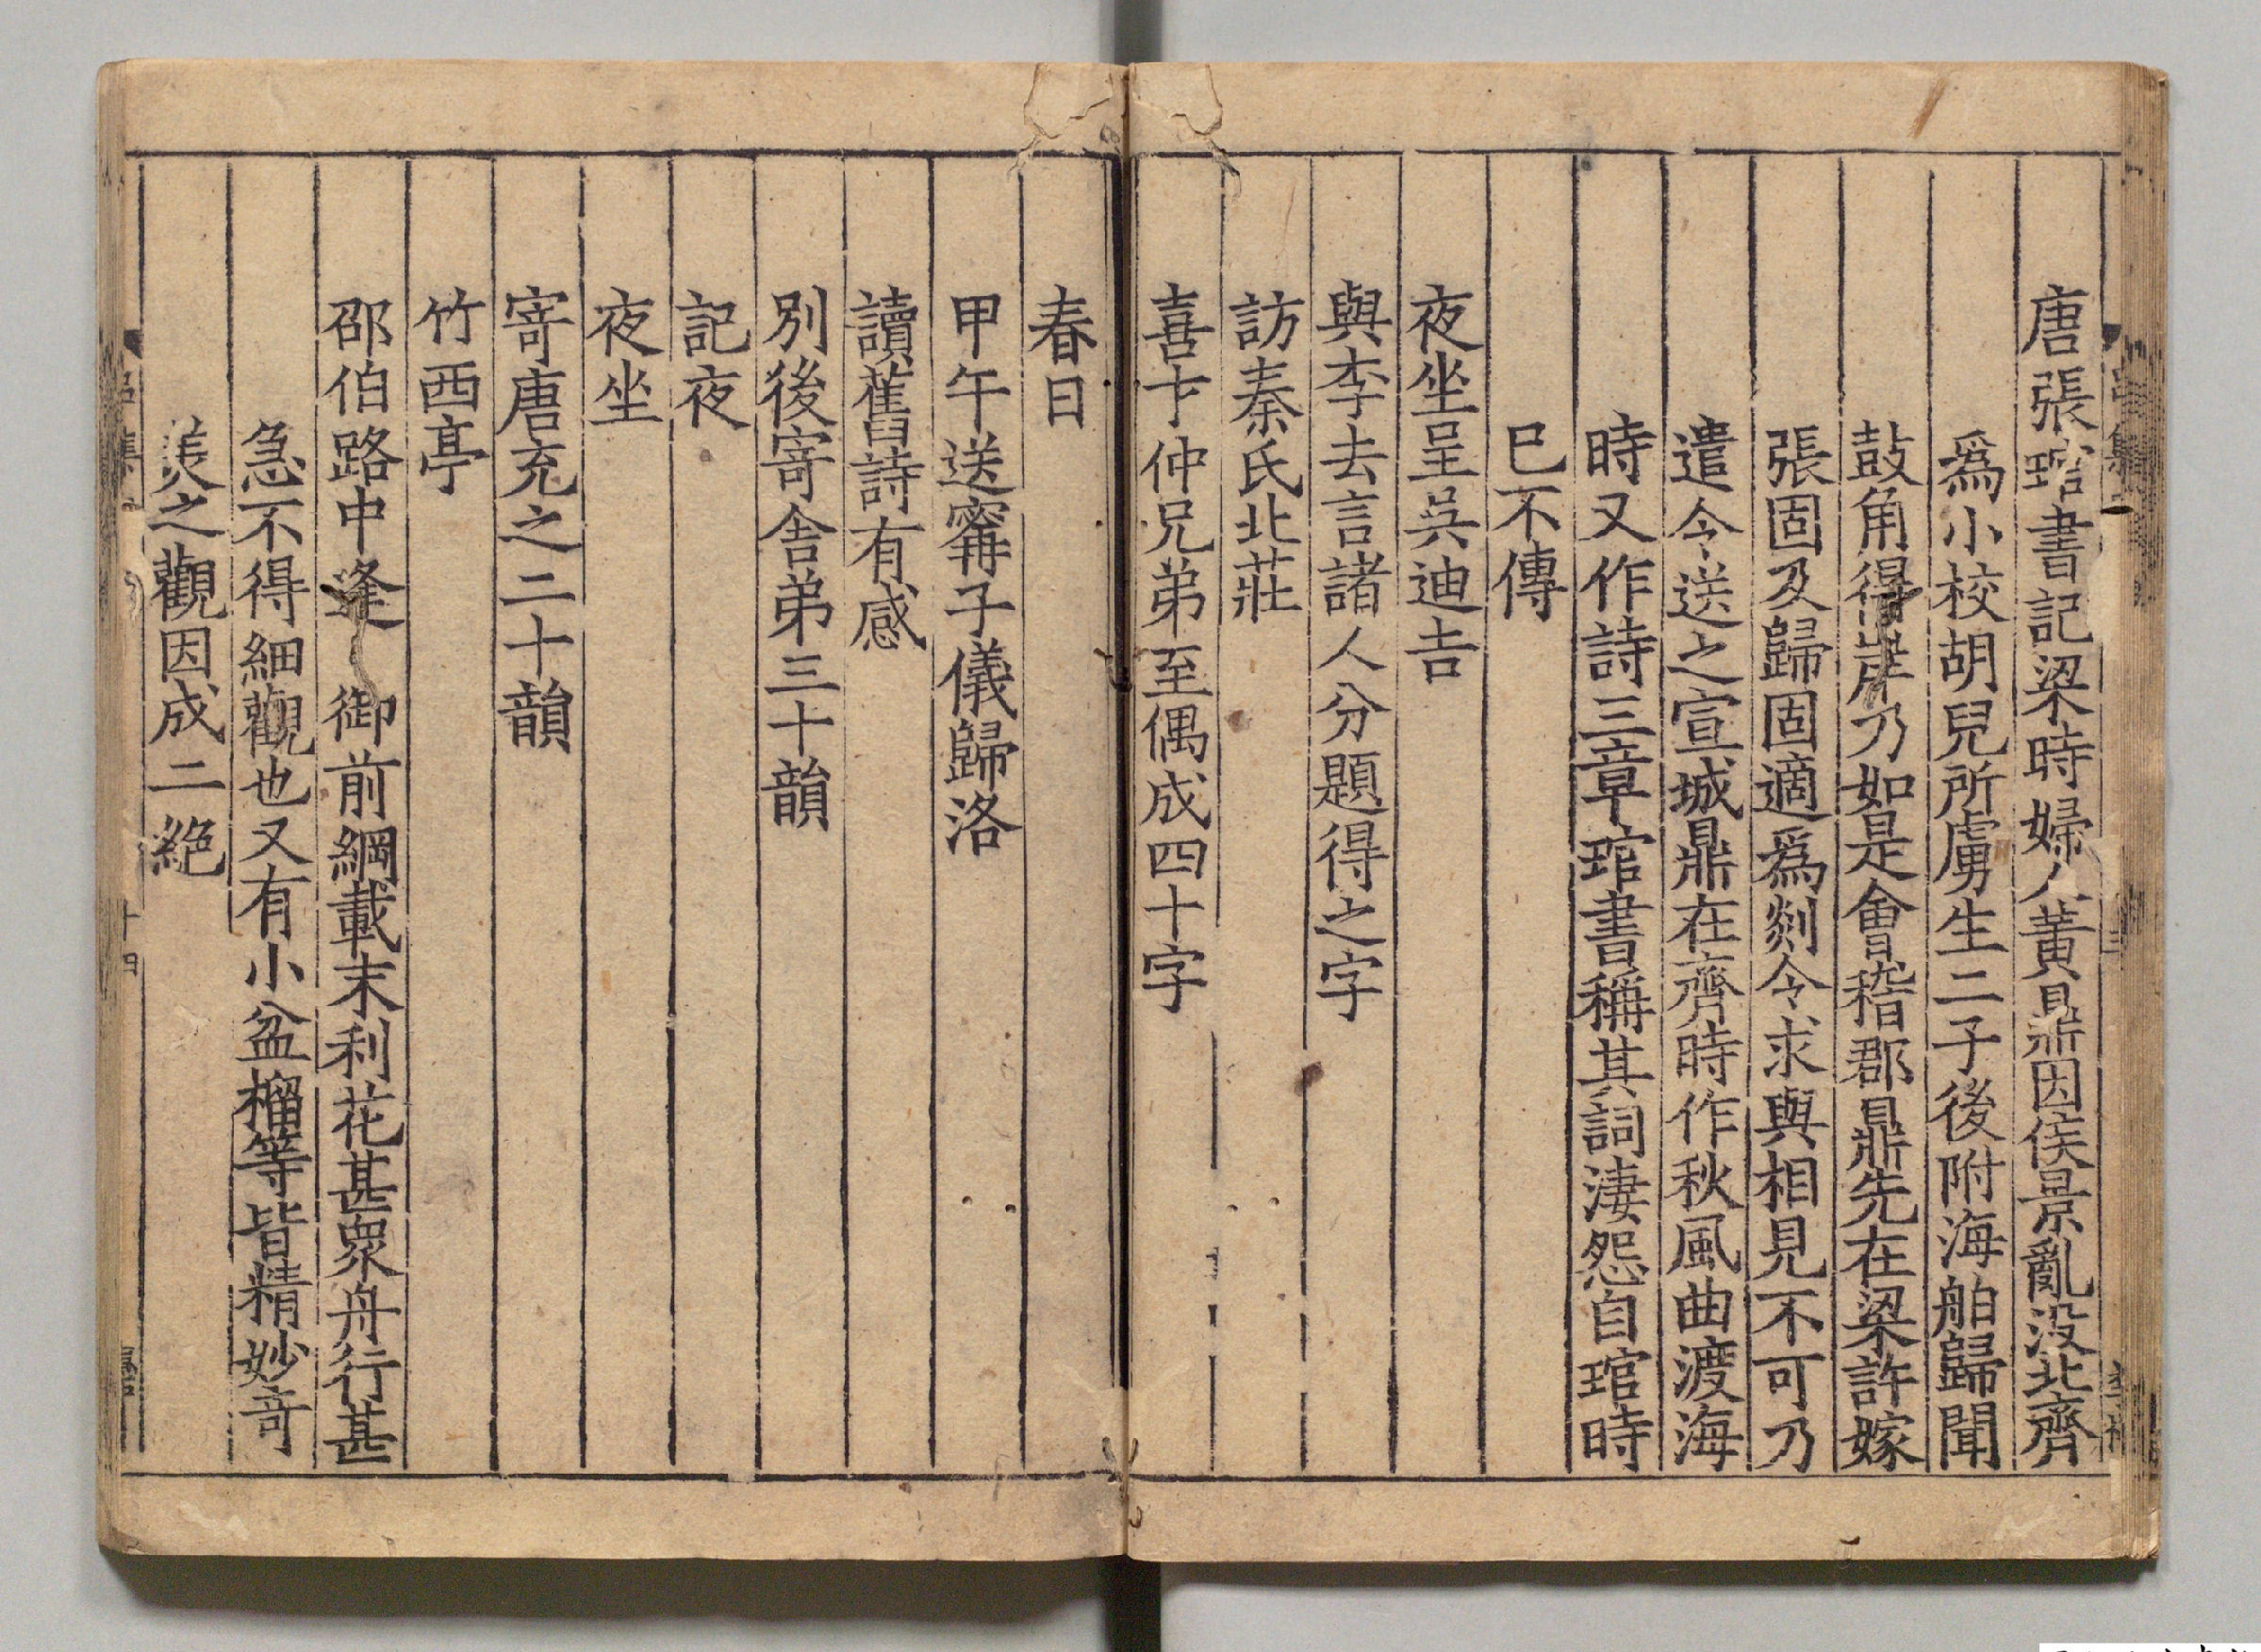 唐張琯書記梁時婦人黃鼎因侯景亂沒北齊
爲小校胡兒所虜生二子後附海舶歸聞
鼓角得岸乃如是會稽郡鼎先在梁許嫁
張固及歸固適爲剡令求與相見不可乃
遣令送之宣城鼎在齊時作秋風曲渡海
時又作詩三章琯書稱其詞淒怨自琯時
已不傳
夜坐呈吳迪吉
與李去言諸人分題得之字
訪秦氏北莊
喜卞仲兄弟至偶成四十字
春日
甲午送甯子儀歸洛
讀舊詩有感
別後寄舍弟三十韻
記夜
夜坐
寄唐充之二十韻
竹西亭
邵伯路中逢 御前綱載末利花甚衆舟行甚
急不得細觀也又有小盆榴等皆精妙奇
羨之觀因成二絕
十四